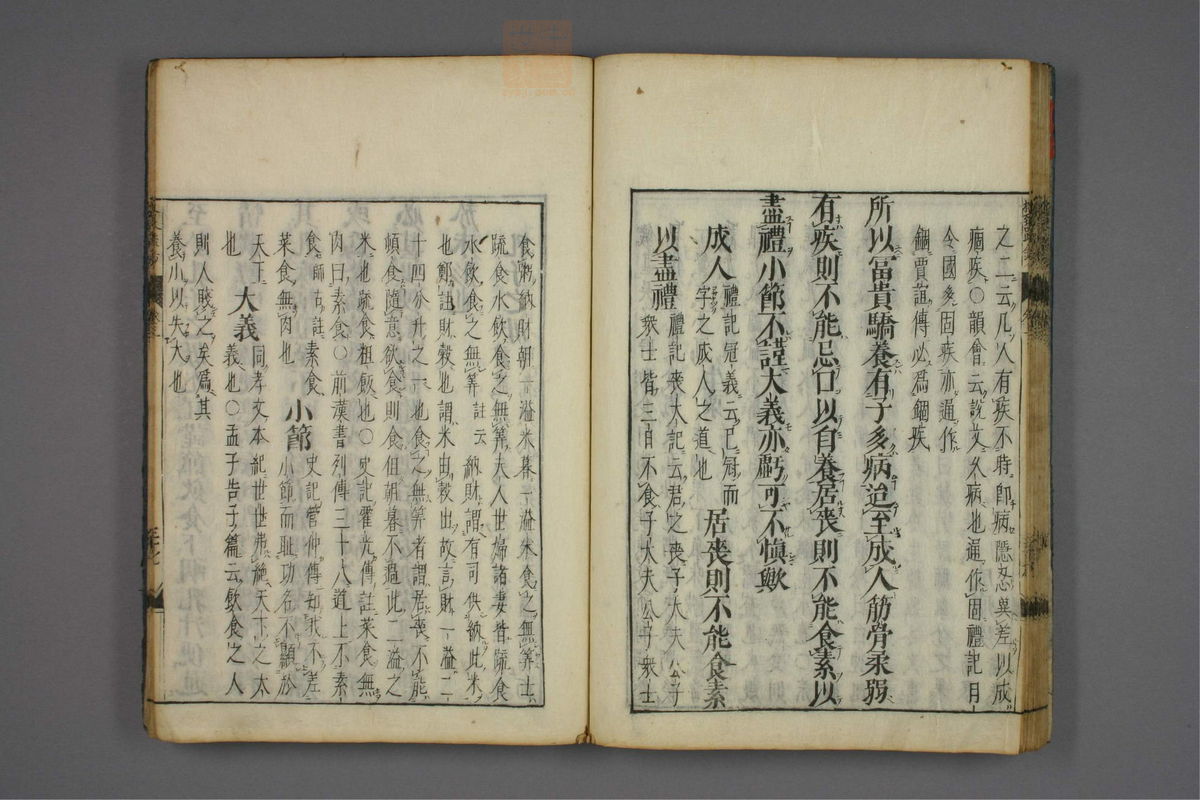 之二云凡人有疾不時即病隱忍冀差以成
痼疾○韻會云説文久病也通作固禮記月
令國多固疾亦通作
錮賈誼傳必爲錮疾
所以富貴驕養有子多病迨至成人筋骨柔弱
有疾則不能忌口以自養居喪則不能食素以
盡禮小節不謹大義亦虧可不愼歟
成人禮記冠義云已冠而字之成人之道也居喪則不能食素
以盡禮禮記喪大記云君之喪子大夫公子衆士皆三日不食子大夫公子衆士
食粥納財朝一溢米暮一溢米食之無筭士
疏食水飲食之無筭夫人世婦諸妻皆疏食
水飲食之無筭註云納財謂有司供納此米
也鄭註財穀也謂米由穀出故言財一溢二
十四分升之一也食之無筭者謂居喪不能
頓食隨意欲食則食但朝暮不過此二溢之
米也疏食粗飯也○史記霍光傳註菜食無
肉曰素食○前漢書列傳三十八道上不素
食師古註素食菜食無肉也小節史記管仲傳知我不差小節而耻功名不顯於
天下也大義同孝文本紀世世弗絶天下之太義也○孟子告子篇云飲食之人
則人賤之矣爲其
養小以失大也